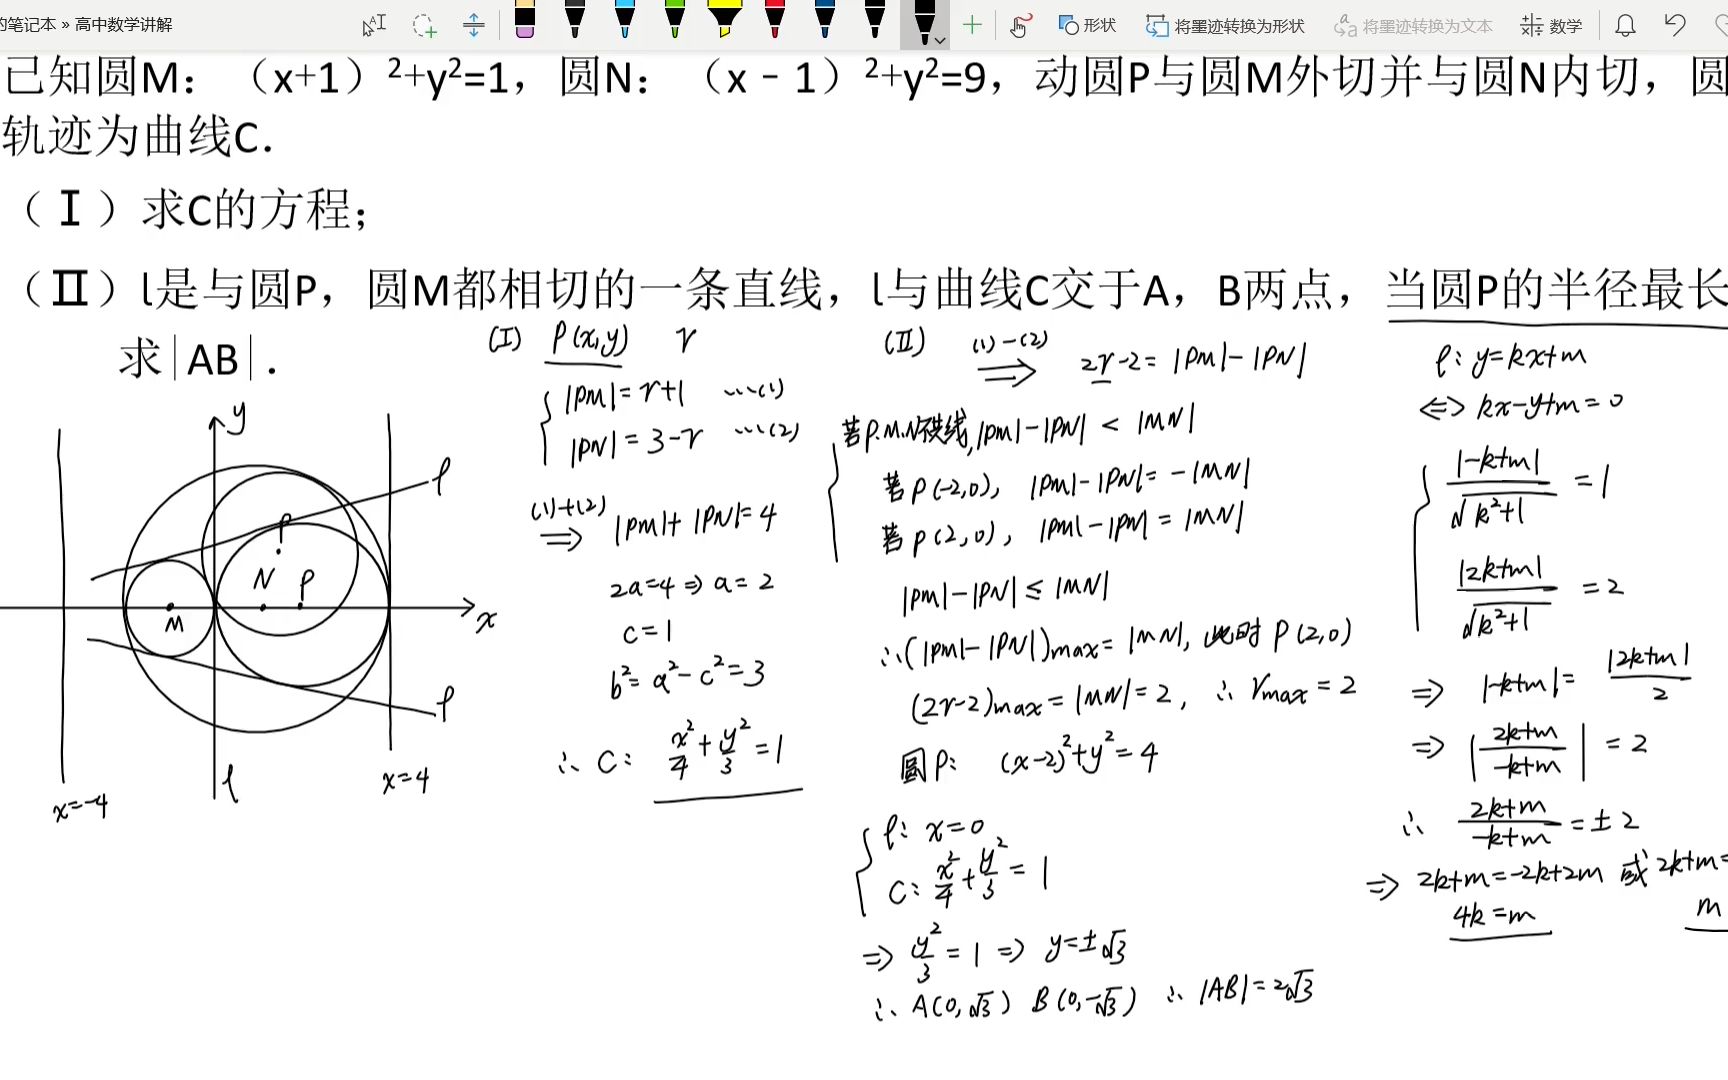 的笔记本 » 高中数学讲解
形状
将墨迹转换为形状
将墨迹转换为文本
数学
已知圆M：（x+1）²+y²=1，圆N：（x﹣1）²+y²=9，动圆P与圆M外切并与圆N内切，圆
轨迹为曲线C.
（Ⅰ）求C的方程；
（Ⅱ）l是与圆P，圆M都相切的一条直线，l与曲线C交于A，B两点，当圆P的半径最长
求|AB|.
y
l
P
N P
M
x
l
l
x=-4
x=4
(I) P(x,y) r
|PM|=r+1 ...(1)
|PN|=3-r ...(2)
(1)+(2)
⇒ |PM|+|PN|=4
2a=4⇒a=2
c=1
b²=a²-c²=3
∴ C: x²/4+y²/3=1
(II) (1)-(2)
⇒ 2r-2=|PM|-|PN|
若P.M.N不共线,|PM|-|PN|<|MN|
若P(-2,0), |PM|-|PN|=-|MN|
若P(2,0), |PM|-|PN|=|MN|
|PM|-|PN|≤|MN|
∴(|PM|-|PN|)max=|MN|, 此时P(2,0)
(2r-2)max=|MN|=2, ∴ rmax=2
圆P: (x-2)²+y²=4
l: x=0
C: x²/4+y²/3=1
⇒ y²/3=1 ⇒ y=±√3
∴ A(0,√3) B(0,-√3) ∴ |AB|=2√3
l: y=kx+m
⇔ kx-y+m=0
|-k+m|/√k²+1=1
|2k+m|/√k²+1=2
⇒ |-k+m|=|2k+m|/2
⇒ |2k+m/-k+m|=2
∴ 2k+m/-k+m=±2
⇒ 2k+m=-2k+2m 或 2k+m=
4k=m m